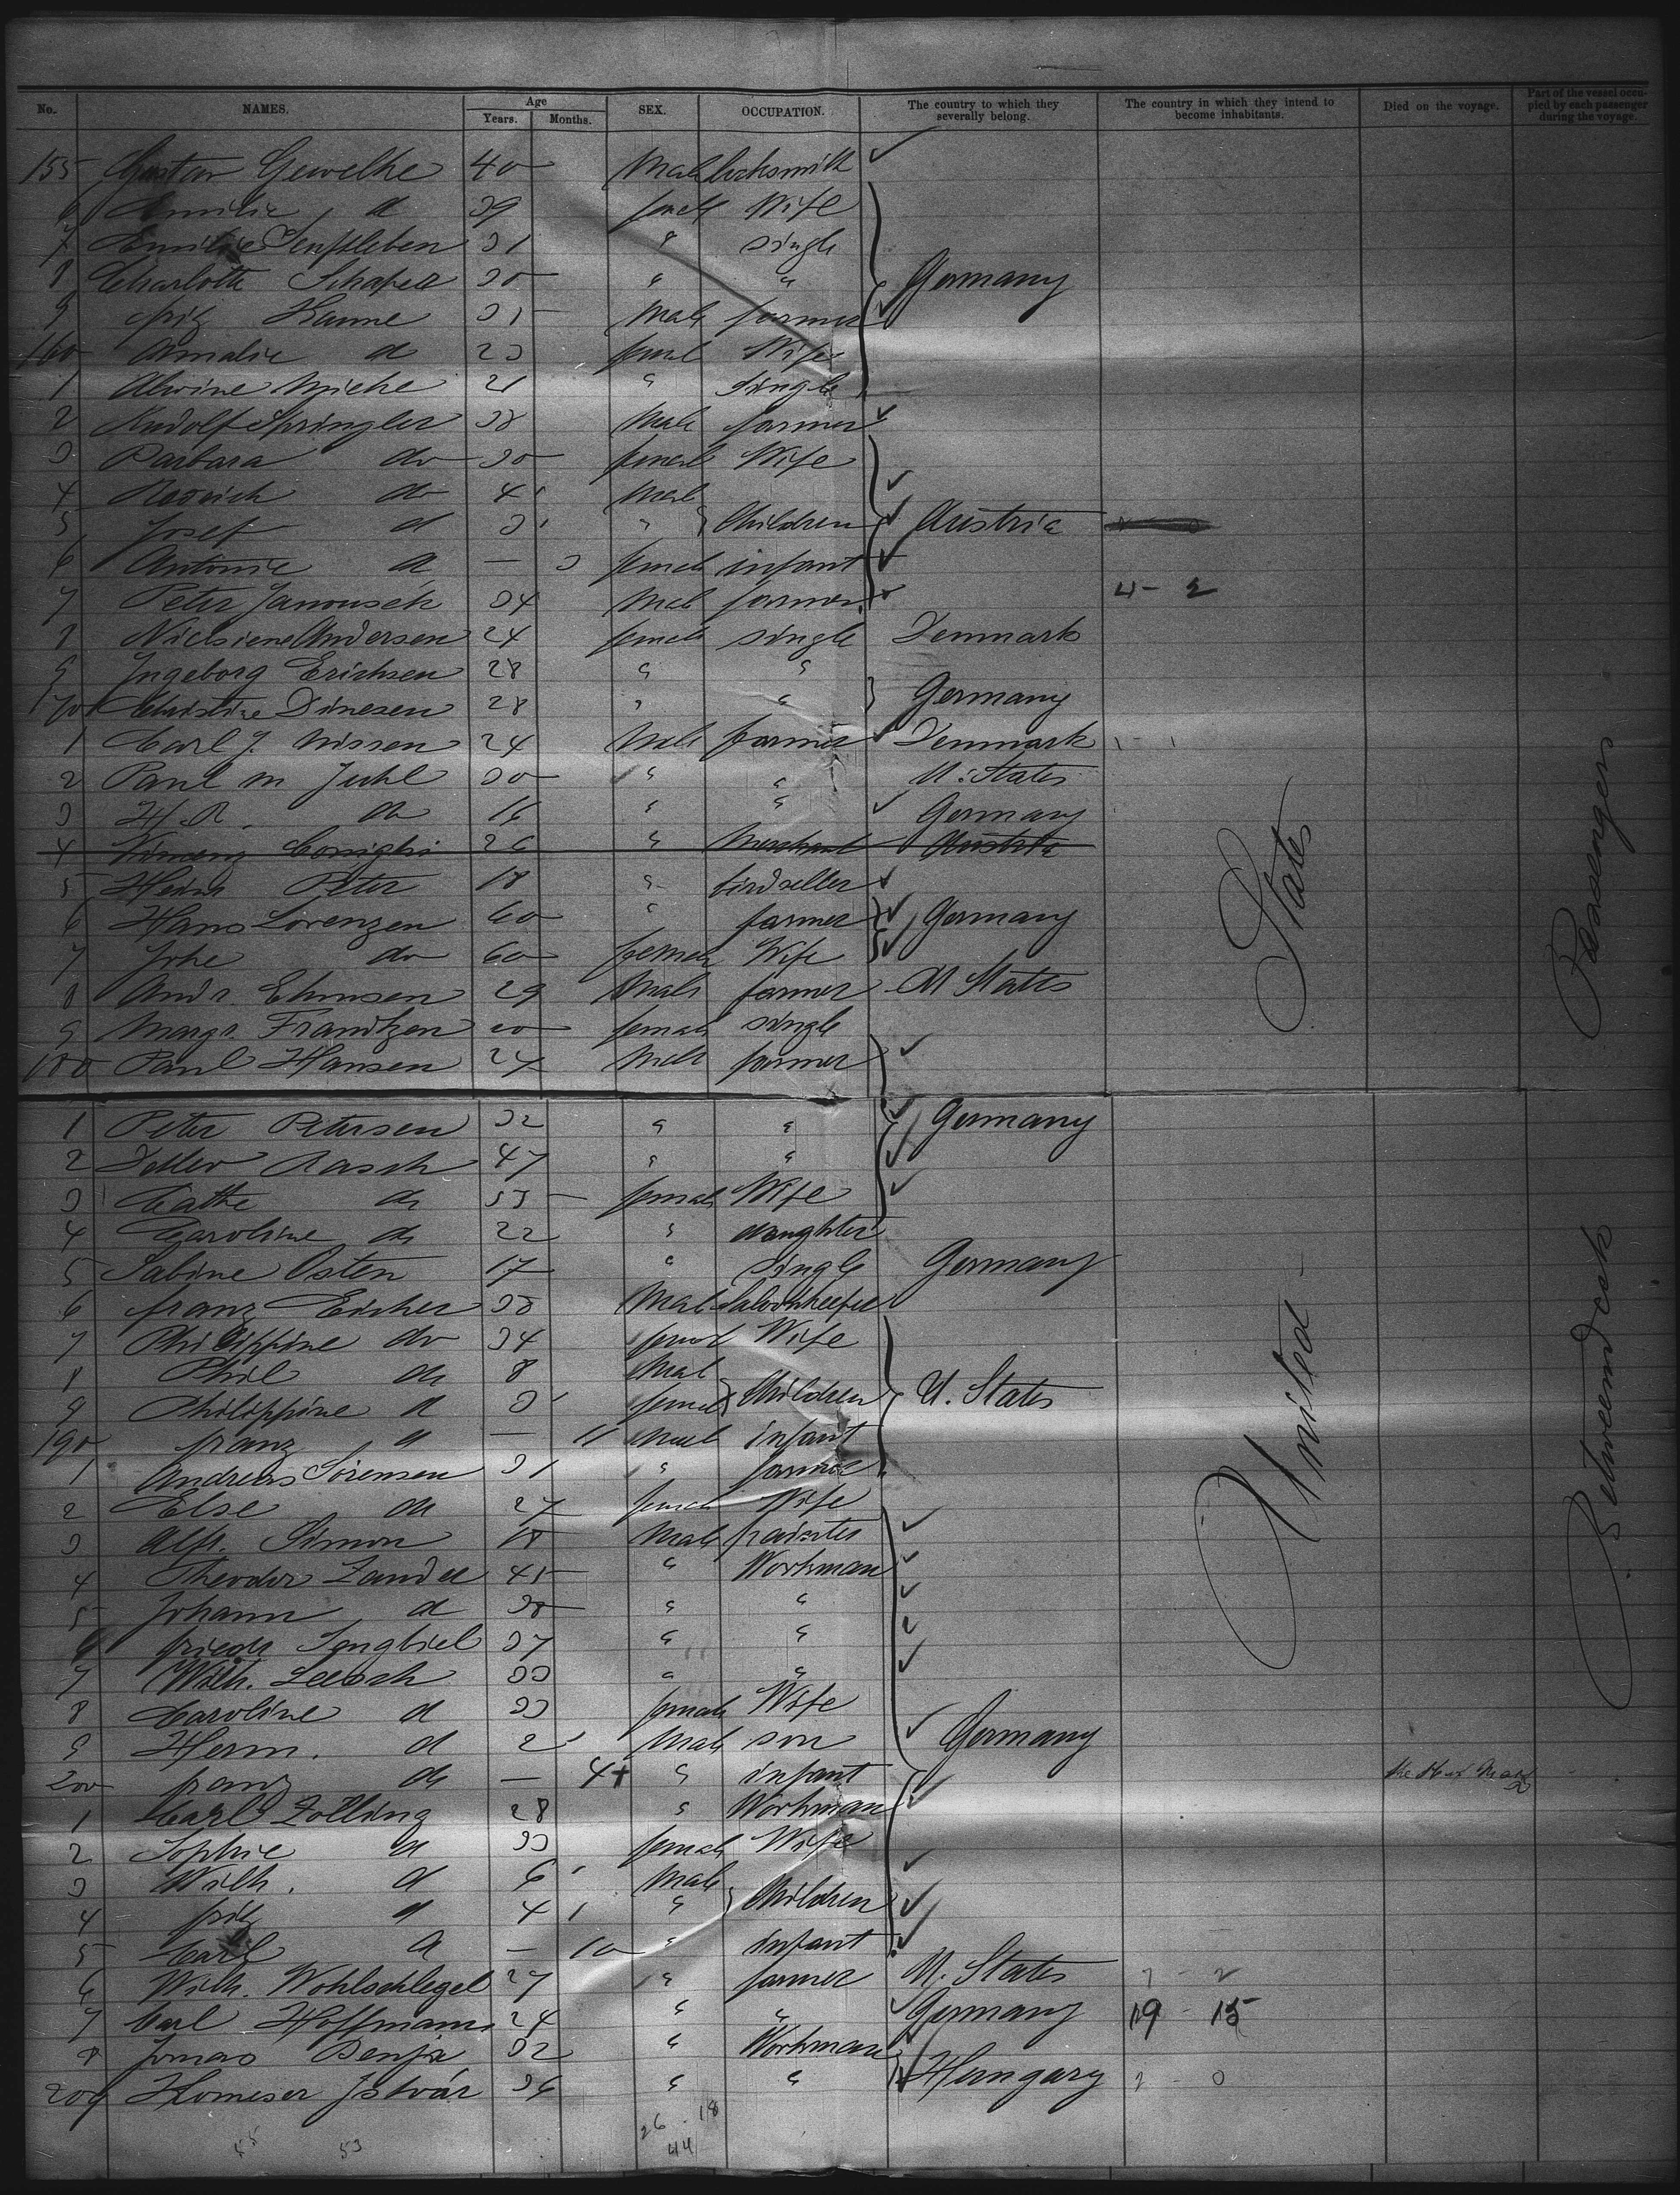 No. NAMES. Age Years. Months. SEX. OCCUPATION. The country to which they severally belong. The country in which they intend to become inhabitants. Died on the voyage. Part of the vessel occupied by each passenger during the voyage.
155 Gustav Gewelke 40 Male locksmith
6 Emilie d 39 femal Wife
7 Emilie Senftleben 31 " single
8 Charlotte Schaper 30 " " Germany
9 fritz Hanne 35 Male farmer
160 Amalie d 23 femal Wife
1 Alwine Mieke 21 " single
2 Rudolf Springler 38 Male farmer
3 Barbara do 30 femal Wife
4 do 4 Male
5 Josef d 3 " Children Austria
6 Antonie d — 3 female infant
7 Peter Janousek 34 Male farmer 4 - 2
8 Nielsiene Andersen 24 female single Denmark
9 Ingeborg Erichsen 28 " "
170 Christine Dinesen 28 " " Germany
1 Carl J. Nissen 24 Male farmer Denmark
2 Paul M Juhl 30 " " U. States
3 H. R. do 16 " " Germany
4 26 " Merchant Austria
5 Heinr Peter 18 " birdseller
6 Hans Lorenzen 60 " farmer Germany
7 do 60 female Wife
8 Andr. 29 Male farmer U States
9 Margr. Frandtzen 20 female single
180 Paul Hansen 24 Male farmer
1 Peter Petersen 32 " " Germany
2 Detlev Rasch 47 " "
3 Cathe do 53 female Wife
4 Caroline do 22 " daughter
5 Sabine Osten 17 " single Germany
6 franz Eicher 38 Male Saloonkeeper
7 Philippine do 34 femal Wife
8 Phil do 8 Male
9 Philippine d 3 femal Children U. States
190 franz d — 11 Male infant
1 Andreas Sörensen 31 " farmer
2 Else do 27 female Wife
3 Alfr. Simon 18 Male painter
4 Theodor Zander 45 " Workman
5 Johann d 38 " "
6 friedr Sengbiel 37 " "
7 Wilh. 33 " "
8 Caroline d 33 female Wife
9 Herm. d 2 Male son Germany
200 franz do — 4+ " infant
1 Carl Zölling 28 " Workman
2 Sophie d 33 female Wife
3 Wilh. d 6 Male
4 fritz d 4 " Children
5 Carl d — 10 " infant
6 Wilh. Wohlschlegel 27 " farmer U. States
7 Carl Hoffmann 24 " " Germany 19 - 15
8 32 " Workman
209 István 36 " " Hungary
26 - 18
44
53
United States
Betweendeck Passengers